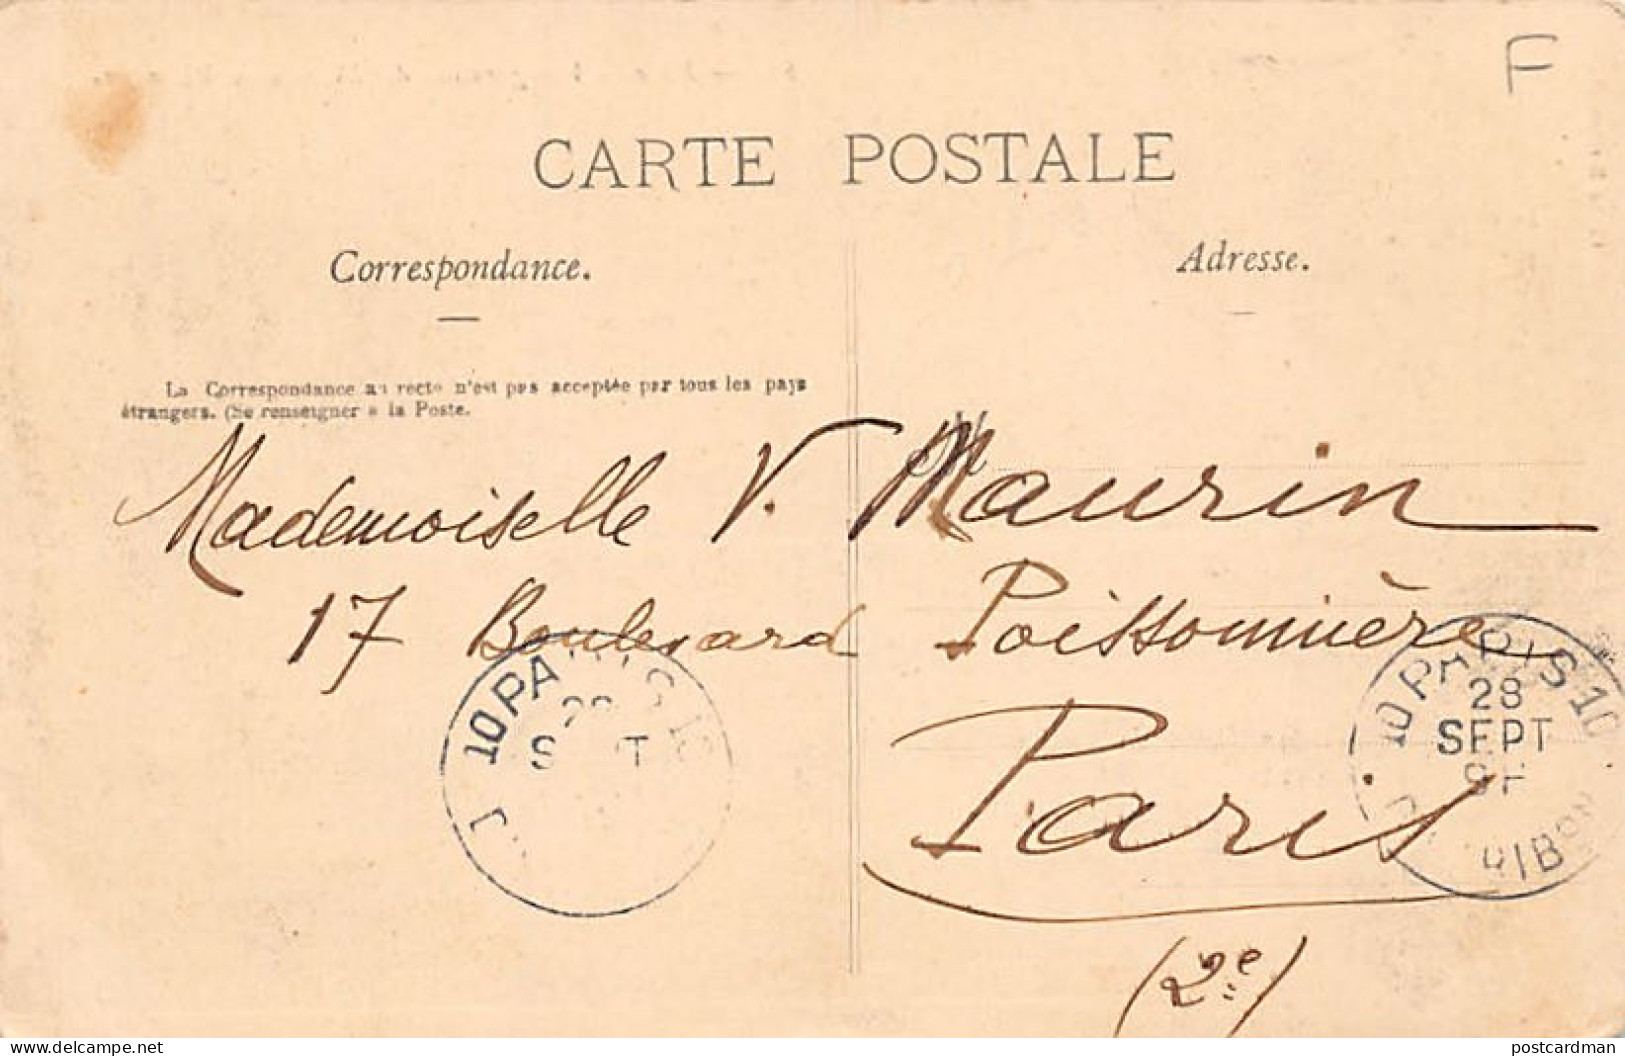 F
CARTE POSTALE
Correspondance.
Adresse.
La Correspondance au recto n'est pas acceptée par tous les pays
étrangers. (Se renseigner à la Poste.
Mademoiselle V. Maurin
17 Boulevard Poissonnière
Paris
(2e)
10 PA
10 PARIS 10
28
SEPT
delcampe.net
postcardman